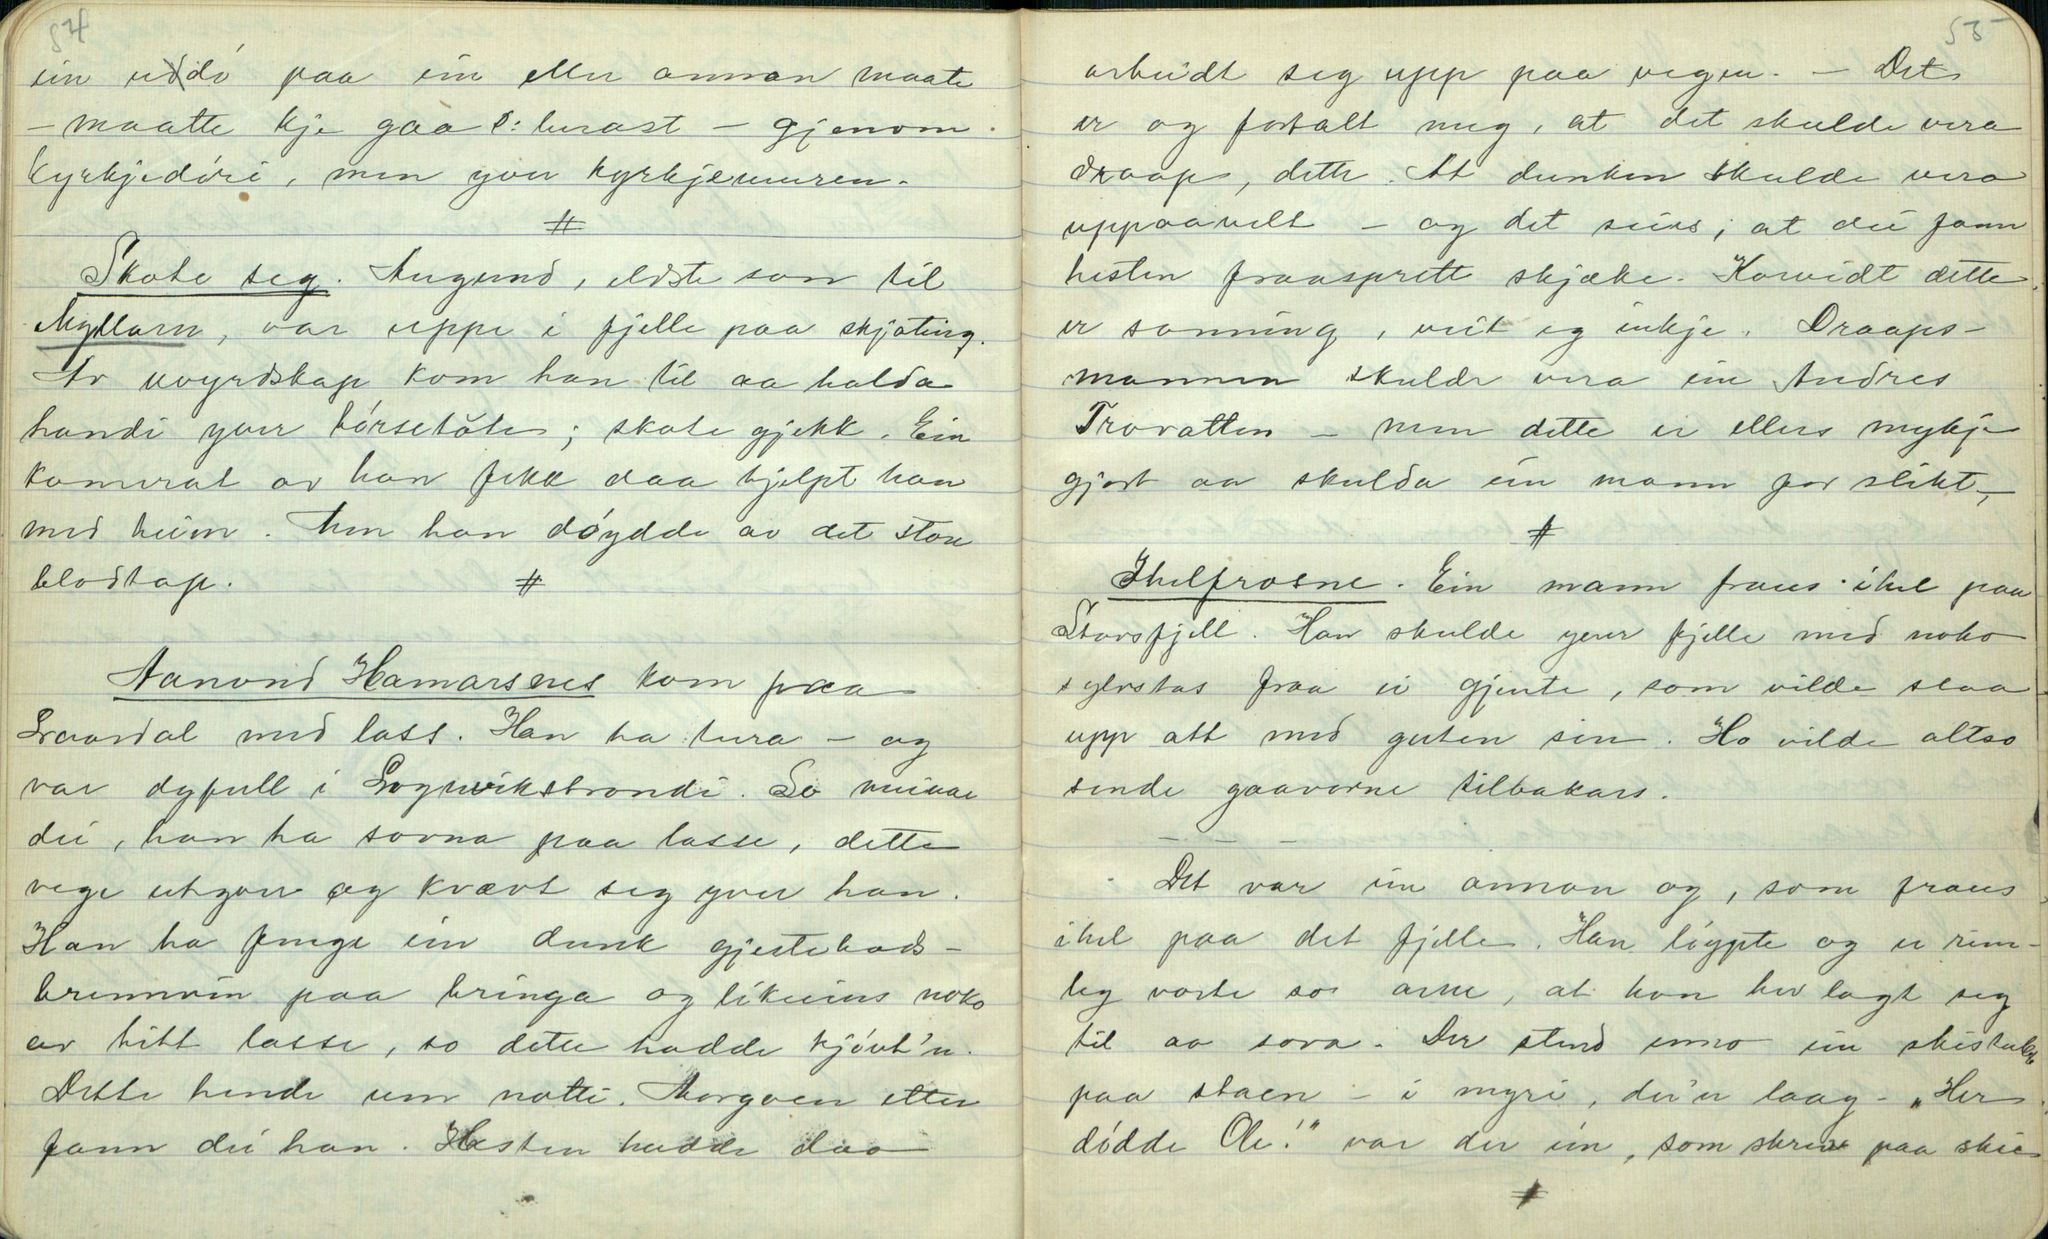 54
ein uddö paa ein eller annan maate
– maatte kje gaa ɔ: berast – gjenom
kyrkjedöri, men yver kyrkjemuren.
#
Skote seg. Augund, eldste son til
Myllarn, var uppe i fjelle paa skjoting.
Av uvyrdskap kom han til aa halda
handi yver börsetöta; skote gjekk. Ein
kamerat av han fekk daa hjelpt han
med heim. Men han döydde av det store
blodtap.
#
Aanond Hamarsnes kom paa
Lraardal med lass. Han ha tura – og
var dyfull i Sognvikstrondi. So meinar
dei, han ha sovna paa lasse, dette
vege utyver og kvævt seg yver han.
Han ha fenge ein dunk gjestebods-
brennvin paa bringa og likeeins noko
av hitt lasse, so dette hadde kjövt'n.
Dette hende um notti. Morgoen etter
fann dei han. Hesten hadde daa
55
arbeidt seg upp paa vegen. – Det
er og fortalt meg, at det skulde vera
draap, dette. At dunken skulde vera
uppaavelt – og det seies, at dei fann
hesten fraasprett skjæke. Korvidt dette
er sanning, veit eg inkje. Draaps-
mannen skulde vera ein Andres
Trovatten – men dette er ellers mykje
gjort aa skulda ein mann for slikt,–
#
Ihelfrosne. Ein mann fraus ihel paa
Storsfjell. Han skulde yver fjelle med noko
sylvstas fraa ei gjente, som vilde slaa
upp att med guten sin. Ho vilde altso
sende gaavorne tilbakars.
– – –
Det var ein annan og, som fraus
ihel paa det fjelle. Han löypte og er rime-
leg vorte so arm, at han hev lagt seg
til aa sova. Der stend enno ein skistubbe
paa staen – i myri, der'n laag. „Her
dödde Ole!" var der ein, som skreiv paa skie
#